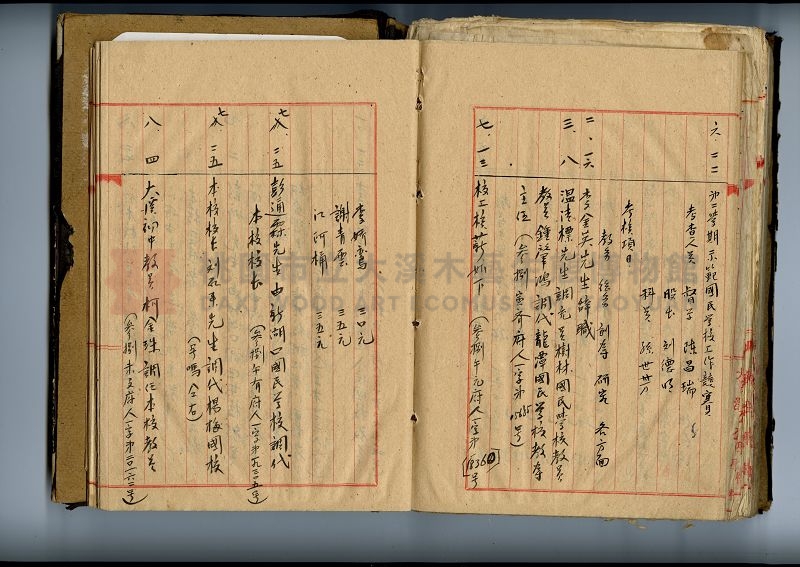 六.二二 第二學期示範國民學校工作競賽
考查人員 督學 陳昌瑞
股長 劉德明
科員
考核項目
教務 訓導 研究 各方面
二.二六 李金英先生辭職
三.八 溫清標先生調充員樹林國民學校教員
教員鍾肇鴻調代龍潭國民學校教導
主任(參捌 府人一字第 號)
七.一三 校工核薪如下(參捌午元府人一字第18360號)
李矯鶯 三〇元
謝青雲 三五元
江阿桶 三五元
七.二五 彭通霖先生由新湖口國民學校調代
本校校長(參捌午有府人一字第一九三〇五號)
七.二五 本校校長劉石平先生調代楊梅國校
(字號仝右)
八.四 大溪初中教員柯金珠調任本校教員
(參捌未支府人一字第二〇一六二號)
桃園市立大溪木藝生態博物館
DAXI WOOD ART ECOMUSEUM